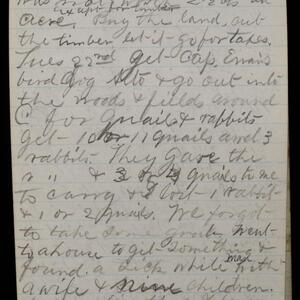 except for timber
acre. Buy the land, cut
the timber let it go for taxes.
Tues 23rd Get Cap. Evans
bird dog & go out into
the woods & fields around
C for quails & rabbits
get 10 or 11 quails and 3
rabbits. They gave the
" " & 3 or 4 quails to me
to carry & I lost 1 rabbit
& 1 or 2 quails. We forgot
to take some grub. Went
to a house to get something &
found a sick white man with
a wife & nine children.